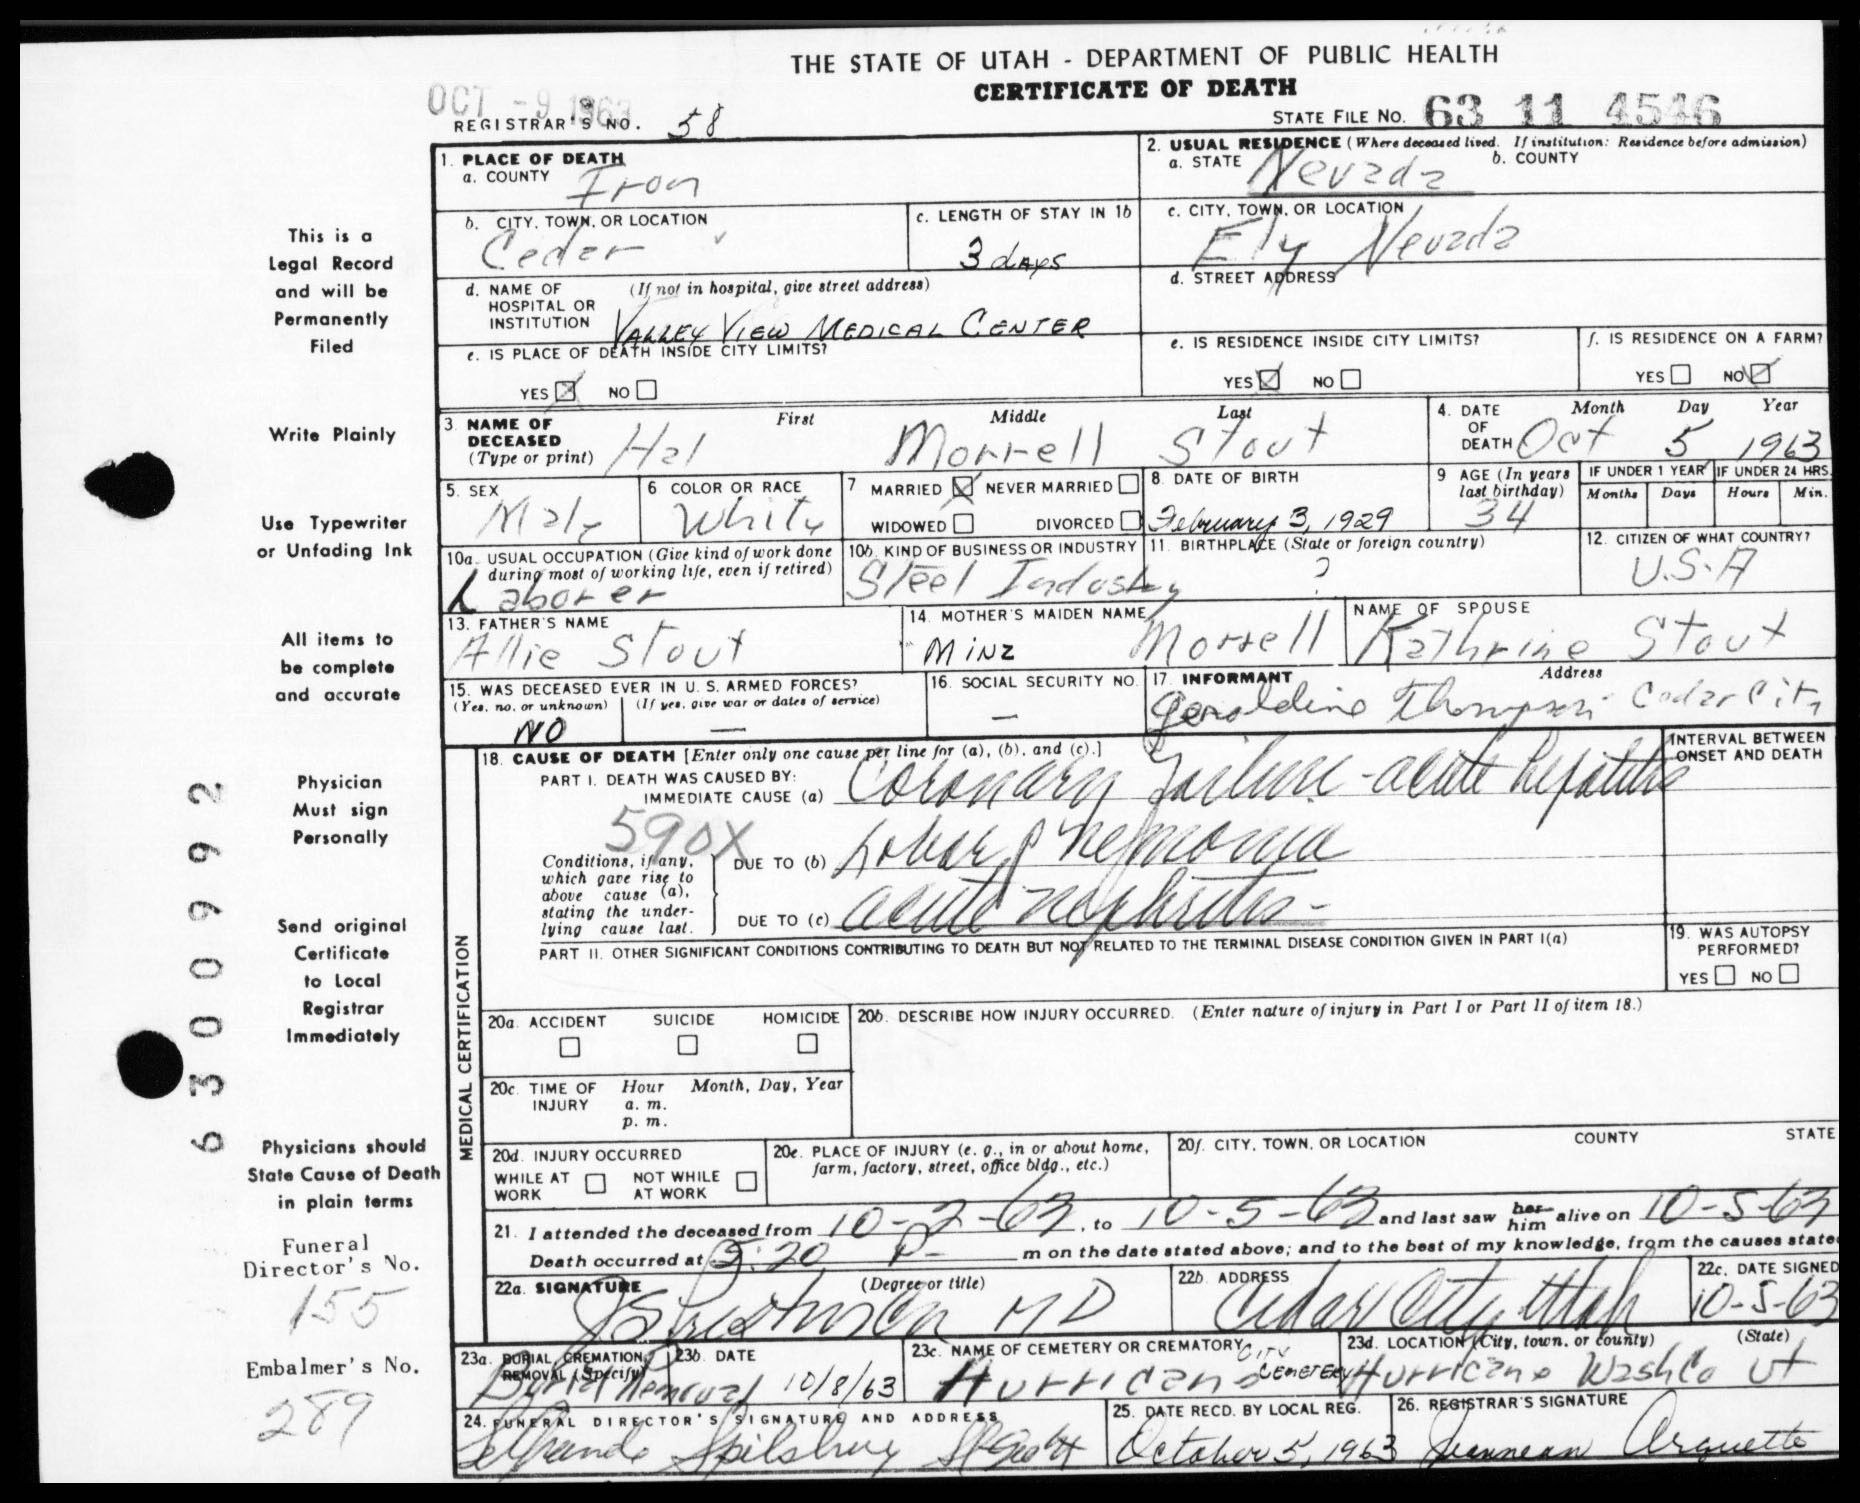 THE STATE OF UTAH - DEPARTMENT OF PUBLIC HEALTH
CERTIFICATE OF DEATH
OCT -9 1963
REGISTRAR'S NO. 58
STATE FILE NO. 63 11 4546
1. PLACE OF DEATH
a. COUNTY Iron
2. USUAL RESIDENCE (Where deceased lived. If institution: Residence before admission)
a. STATE Nevada b. COUNTY
b. CITY, TOWN, OR LOCATION Cedar
c. LENGTH OF STAY IN 1b 3 days
c. CITY, TOWN, OR LOCATION Ely Nevada
d. NAME OF HOSPITAL OR INSTITUTION (If not in hospital, give street address)
VALLEY VIEW MEDICAL CENTER
d. STREET ADDRESS
e. IS PLACE OF DEATH INSIDE CITY LIMITS?
YES NO
e. IS RESIDENCE INSIDE CITY LIMITS?
YES NO
f. IS RESIDENCE ON A FARM?
YES NO
3. NAME OF DECEASED (Type or print)
First Middle Last
Hal Morrell Stout
4. DATE OF DEATH Month Day Year
Oct 5 1963
5. SEX Male
6 COLOR OR RACE White
7 MARRIED NEVER MARRIED
WIDOWED DIVORCED
8. DATE OF BIRTH
February 3, 1929
9 AGE (In years last birthday) 34
IF UNDER 1 YEAR Months Days
IF UNDER 24 HRS. Hours Min.
10a. USUAL OCCUPATION (Give kind of work done during most of working life, even if retired)
Laborer
10b. KIND OF BUSINESS OR INDUSTRY
Steel Industry
11. BIRTHPLACE (State or foreign country)
?
12. CITIZEN OF WHAT COUNTRY?
U.S.A
13. FATHER'S NAME
Allie Stout
14. MOTHER'S MAIDEN NAME
Mina Morrell
NAME OF SPOUSE
Kathrine Stout
15. WAS DECEASED EVER IN U. S. ARMED FORCES?
(Yes, no, or unknown) (If yes, give war or dates of service)
NO —
16. SOCIAL SECURITY NO.
—
17. INFORMANT Address
Geraldine Thompson Cedar City
MEDICAL CERTIFICATION
18. CAUSE OF DEATH [Enter only one cause per line for (a), (b), and (c).]
INTERVAL BETWEEN ONSET AND DEATH
PART I. DEATH WAS CAUSED BY:
IMMEDIATE CAUSE (a) Coronary Failure - acute hepatitis
590X
Conditions, if any, which gave rise to above cause (a), stating the underlying cause last.
DUE TO (b) Lobar pneumonia
DUE TO (c) acute nephritis -
PART II. OTHER SIGNIFICANT CONDITIONS CONTRIBUTING TO DEATH BUT NOT RELATED TO THE TERMINAL DISEASE CONDITION GIVEN IN PART I(a)
19. WAS AUTOPSY PERFORMED?
YES NO
20a. ACCIDENT SUICIDE HOMICIDE
20b. DESCRIBE HOW INJURY OCCURRED. (Enter nature of injury in Part I or Part II of item 18.)
20c. TIME OF INJURY Hour Month, Day, Year
a. m.
p. m.
20d. INJURY OCCURRED
WHILE AT WORK NOT WHILE AT WORK
20e. PLACE OF INJURY (e. g., in or about home, farm, factory, street, office bldg., etc.)
20f. CITY, TOWN, OR LOCATION COUNTY STATE
21. I attended the deceased from 10-2-63, to 10-5-63 and last saw her him alive on 10-5-63
Death occurred at 5:20 P- m on the date stated above; and to the best of my knowledge, from the causes state
22a. SIGNATURE (Degree or title)
MD
22b. ADDRESS
Cedar City Utah
22c. DATE SIGNED
10-5-63
23a. BURIAL, CREMATION, REMOVAL (Specify)
Burial Removal
23b. DATE
10/8/63
23c. NAME OF CEMETERY OR CREMATORY
Hurricane CITY CEMETERY
23d. LOCATION (City, town, or county) (State)
Hurricane Wash Co Ut
24. FUNERAL DIRECTOR'S SIGNATURE AND ADDRESS
Spilsbury
25. DATE RECD. BY LOCAL REG.
October 5, 1963
26. REGISTRAR'S SIGNATURE
Arquette
This is a
Legal Record
and will be
Permanently
Filed
Write Plainly
Use Typewriter
or Unfading Ink
All items to
be complete
and accurate
Physician
Must sign
Personally
Send original
Certificate
to Local
Registrar
Immediately
Physicians should
State Cause of Death
in plain terms
Funeral
Director's No.
155
Embalmer's No.
289
6300992